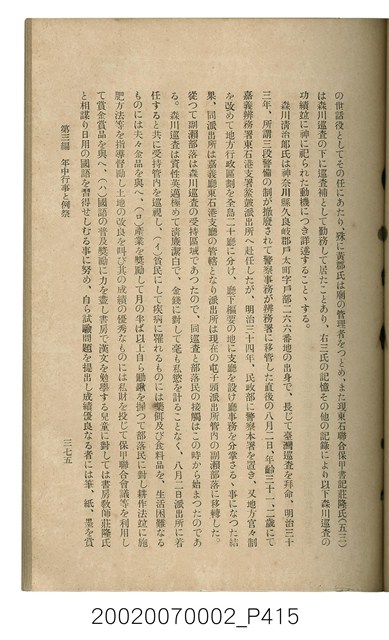 の世話役としてその任にあたり、殊に黃郡氏は廟の管理者をつとめ、また現東石聯合保甲書記莊隆氏(五三)
は森川巡査の下に巡査補として勤務して居たことあり、右三氏の記憶その他の記錄により以下森川巡査の
功績竝に神に祀られた動機につき詳述することゝする。
森川淸治郞氏は神奈川縣久良岐郡戶太町字戶部二六六番地の出身で、長じて臺灣巡査を拜命、明治三十
三年、所謂三段警備の制が撤廢されて警察事務が辨務署に移管した直後の八月二日、年齡三十一、二歲にて
嘉義辨務署東石港支署蒜藔派出所へ赴任したが、明治三十四年、民政部に警察本署を置き、又地方官々制
を改めて地方行政區劃を全島二十廳に分け、廳下樞要の地に支廳を設け廳事務を分掌さるゝ事になつた結
果、同派出所は嘉義廳東石港支廳の管轄となり派出所は現在の屯子頭派出所管內の副瀨部落に移轉した。
從つて副瀨部落は森川巡査の受持區域であつたので、同巡査と部落民の接觸はこの時から始まつたのであ
る。森川巡査は資性英邁極めて淸廉潔白で、金錢に對して毫も私慾を計ることなく、八月二日派出所に着
任すると共に受持管內を巡視し、(イ)貧民にして疾病に罹れるものには藥餌及び食料品を、生活困難なる
ものには夫々金品を與へ、(ロ)產業を獎勵して月の半ば以上自ら鋤鍬を揮つて部落民に對し耕作法竝に施
肥方法等を指導督勵し土地の改良を叫び其の成績の優秀なものには私財を投じて保甲聯合會議等を利用し
て賞金賞品を與へ、(ハ)國語の普及獎勵に力を盡し書房で漢文を勉學する兒童に對しては書房敎師莊隆氏
と相謀り日用の國語を習得せしむる事に努め、自ら試驗問題を提出し成績優良なる者には筆、紙、墨を賞
第三編 年中行事と例祭
三七五
20020070002_P415